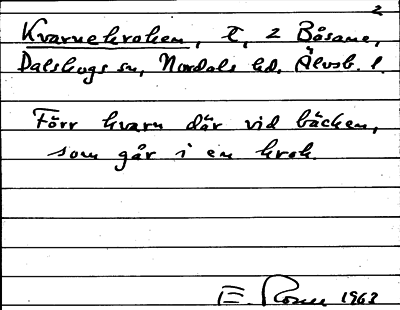 2
Kvarnekroken, t, 2 Båsane,
Dalskogs sn, Nordals hd, Älvsb. l.
Förr kvarn där vid bäcken,
som går i en krok.
E. Rosell 1963